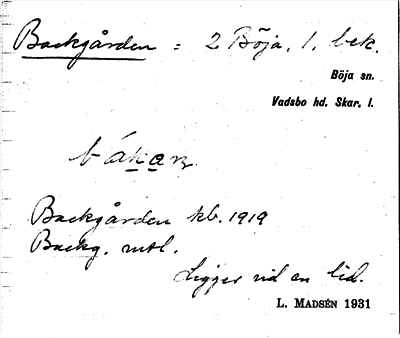 Backgården = 2 Böja, 1, bek.
Böja sn.
Vadsbo hd. Skar. l.
bákan
Backgården kb. 1919
Backg. mtl.
Ligger vid en lid.
L. MADSÉN 1931